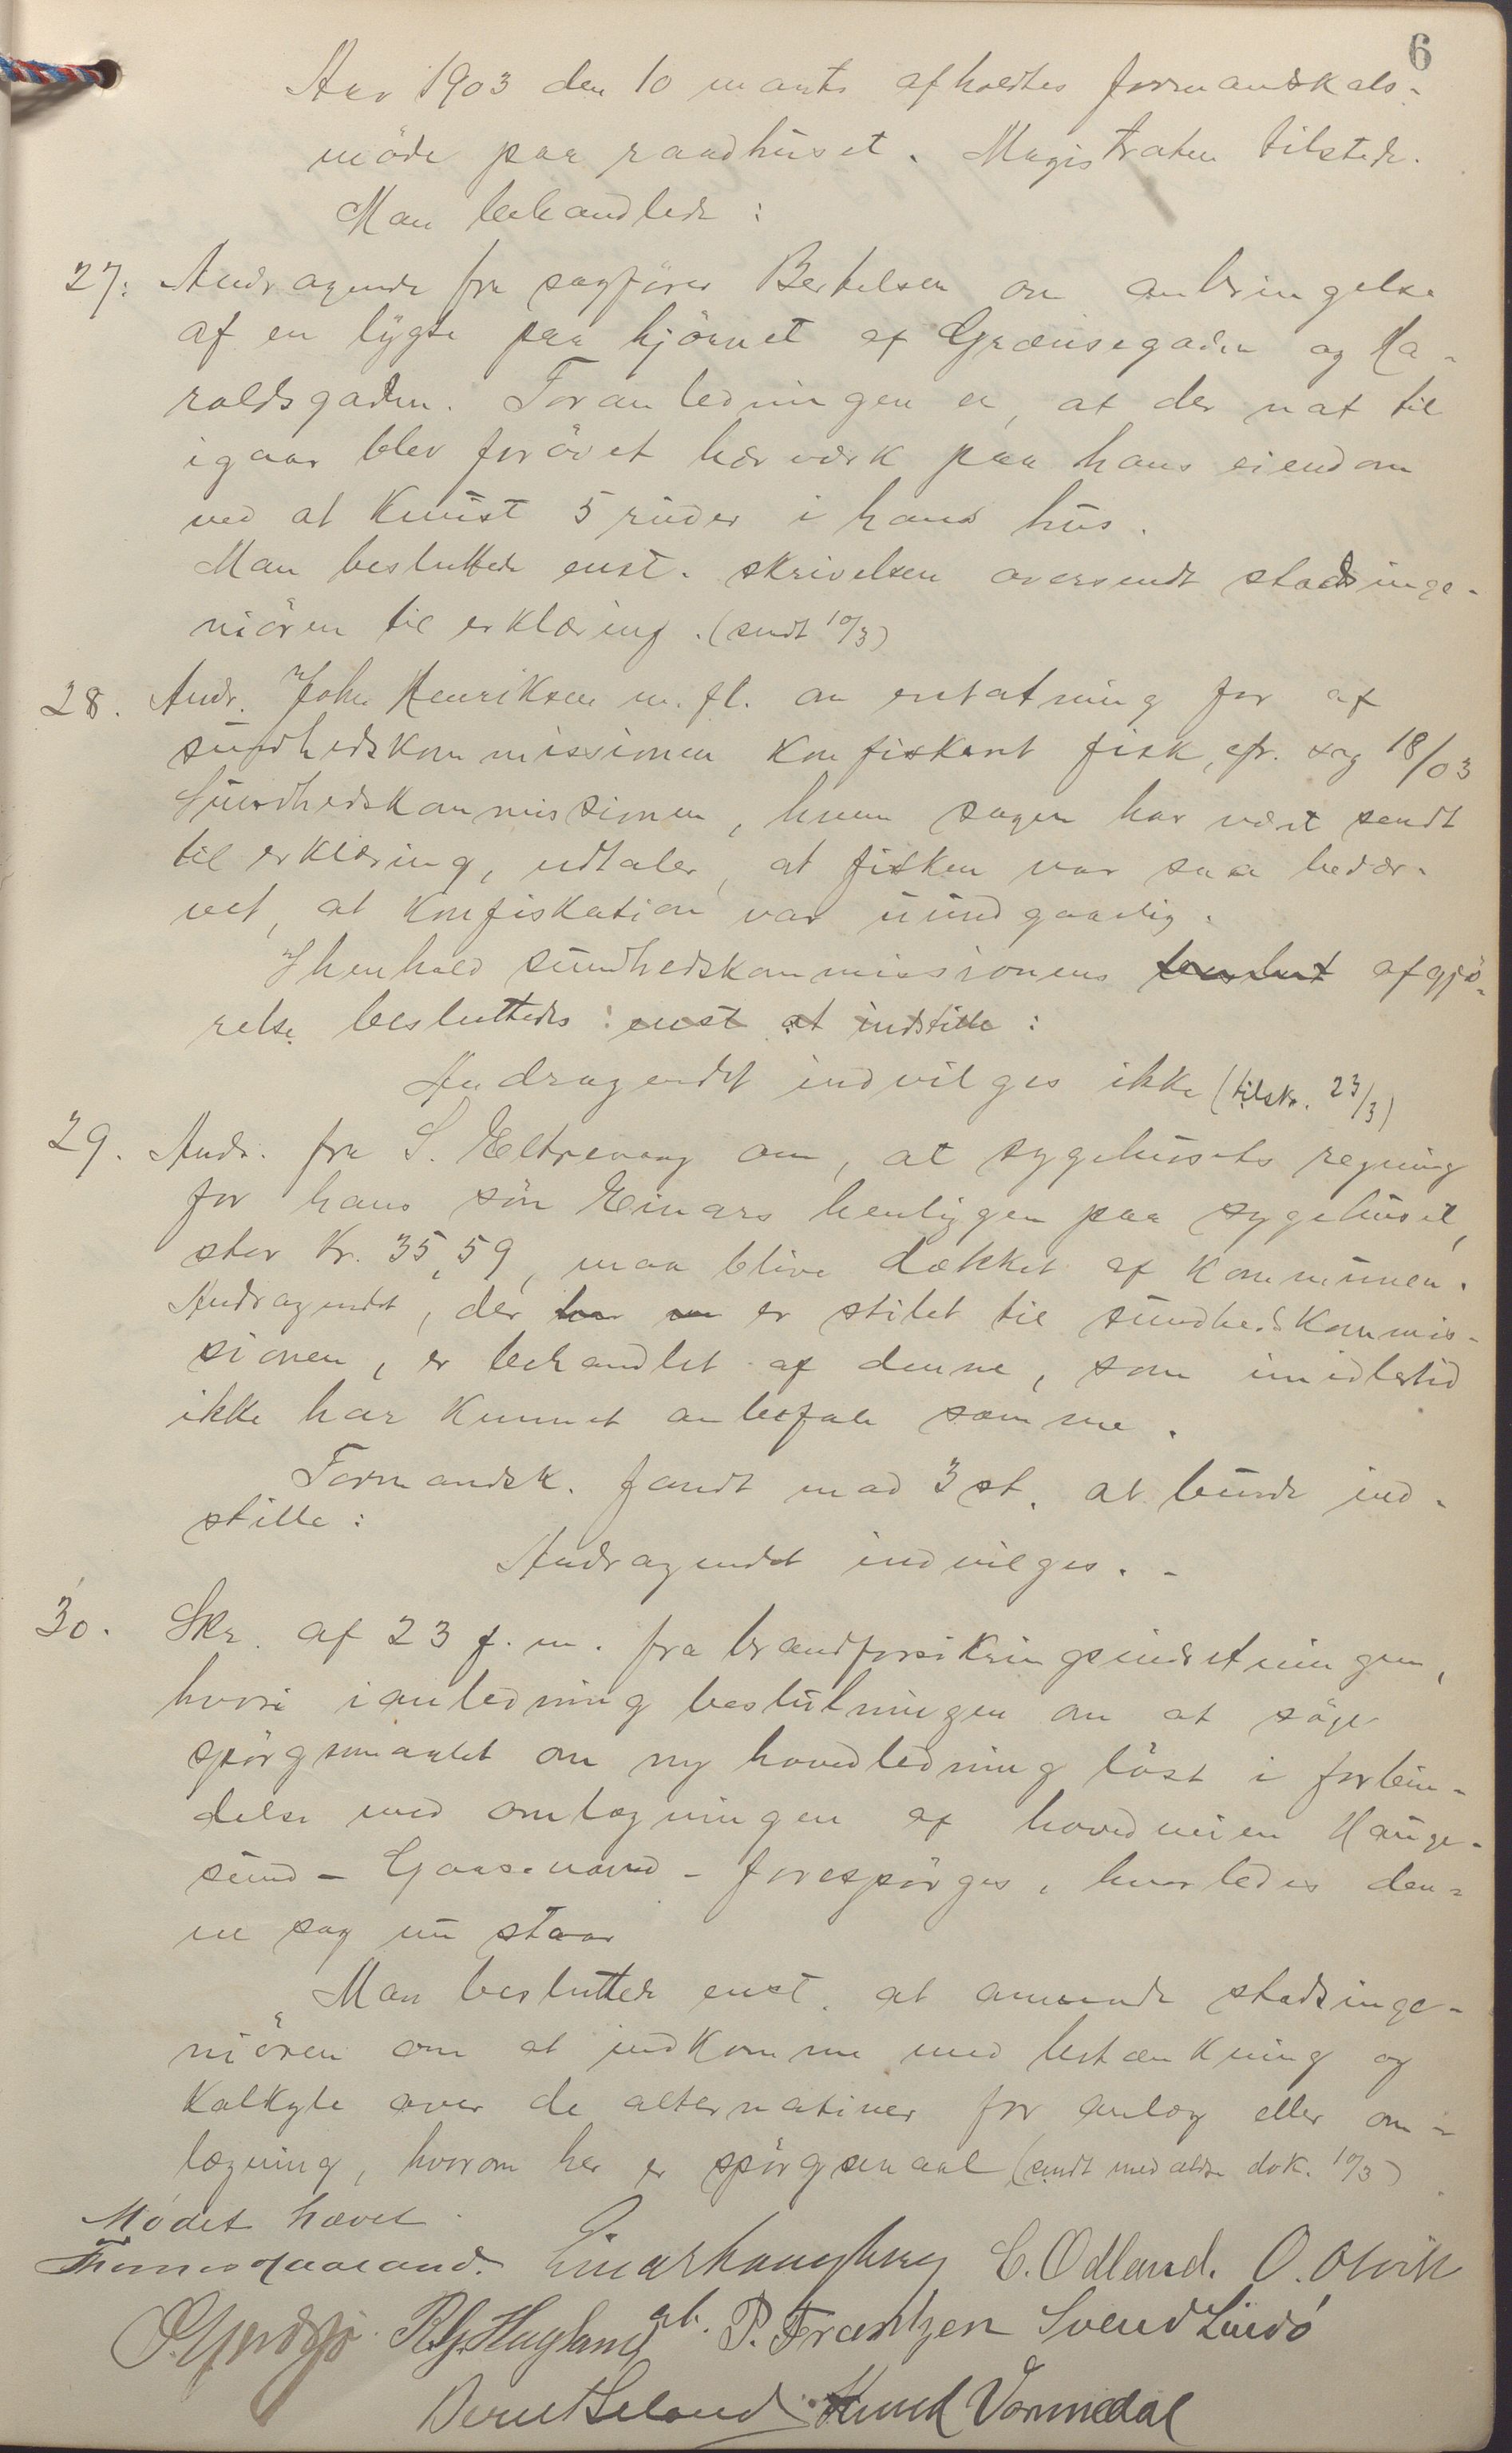 6
Aar 1903 den 10 marts afholdtes formandskabs-
möde paa raadhuset. Magistraten tilstede.
Man behandlede:
27. Andragende fra sagförer Bertelsen om anbringelse
af en lygte paa hjörnet af Grænsegaden og Ha-
raldsgaden. Foranledningen er, at der nat til
igaar blev forövet hærværk paa hans eiendom
ved at knust 5 ruder i hans hus.
Man besluttede enst. skrivelsen oversendt stadsinge-
niören til erklæring. (sendt 10/3)
28. Andr. John Henriksen m. fl. om erstatning for af
sundhedskommissionen konfiskert fisk, cfr. sag 18/03
Sundhedskommissionen, hvem sagen har været sendt
til erklæring, udtaler, at fisken var saa bedær-
vet, at konfiskation var uundgaaelig.
I henhold sundhedskommissionens beslut afgjö-
relse besluttedes: enst at indstille:
Andragendet indvilges ikke (tilskr. 23/3)
29. Andr. fra S. Eltrevaag om, at sygehusets regning
for hans sön Einars henliggen paa sygehuset,
stor kr. 35,59, maa blive dækket af kommunen.
Andragendet, der er stilet til sundhedskommis-
sionen, er behandlet af denne, som imidlertid
ikke har kunnet anbefale samme.
Formandsk. fandt mod 3 st. at burde ind-
stille:
Andragendet indvilges. -
30. Skr. af 23 f. m. fra brandforsikringsindretningen,
hvori i anledning beslutningen om at söge
spörgsmaalet om ny hovedledning löst i forbin-
delse med omlægningen af hovedveien Hauge-
sund - Gaasevand - forespörges, hvorledes den-
ne sag nu staar
Man besluttede enst. at anmode stadsinge-
niören om at indkomme med betænkning og
kalkyle over de alternativer for anlæg eller om-
lægning, hvorom her er spörgsmaal (sendt med ældre dok. 10/3)
Mödet hævet.
C. Odland. O. Olvik
P. Frantzen Svend Lindö
Knud Vormedal